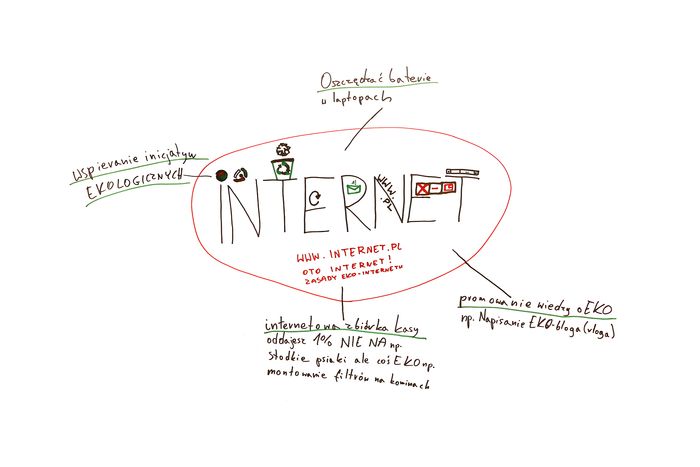 Oszczędzać baterie
w laptopach
Wspieranie inicjatyw
EKOLOGICZNYCH
INTERNET
WWW.
.PL
WWW.INTERNET.PL
OTO INTERNET!
ZASADY EKO-INTERNETU
internetowa zbiórka kasy
oddajesz 1% NIE NA np.
słodkie psiaki ale coś EKO np.
montowanie filtrów na kominach
promowanie wiedzy o EKO
np. Napisanie EKO-bloga (vloga)